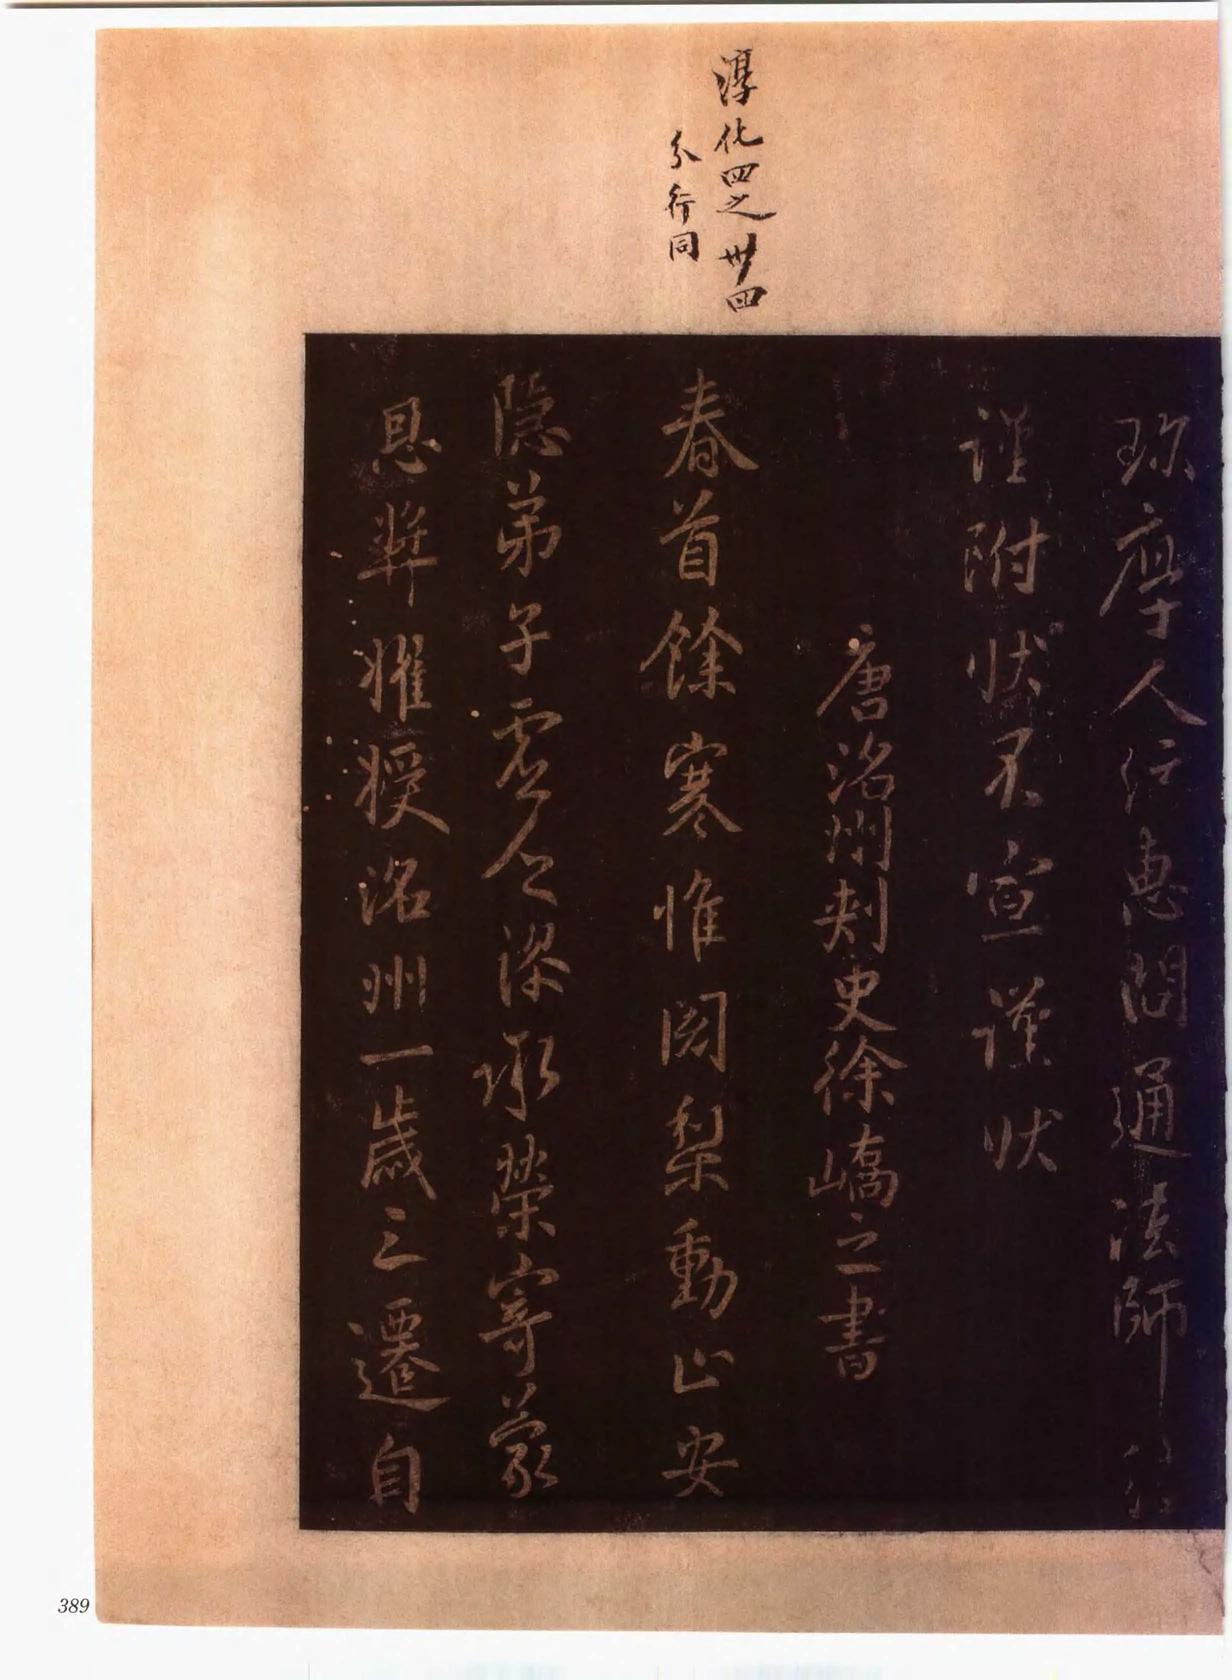 淳化四之卅四
分行同
珎庠人行惠問通法師往
謹附狀不宣謹狀
唐洺州刺史徐嶠之書
春首餘寒惟闍梨動止安
隱弟子虛乏謬承榮寄蒙
恩獎擢授洺州一歲三遷自
389